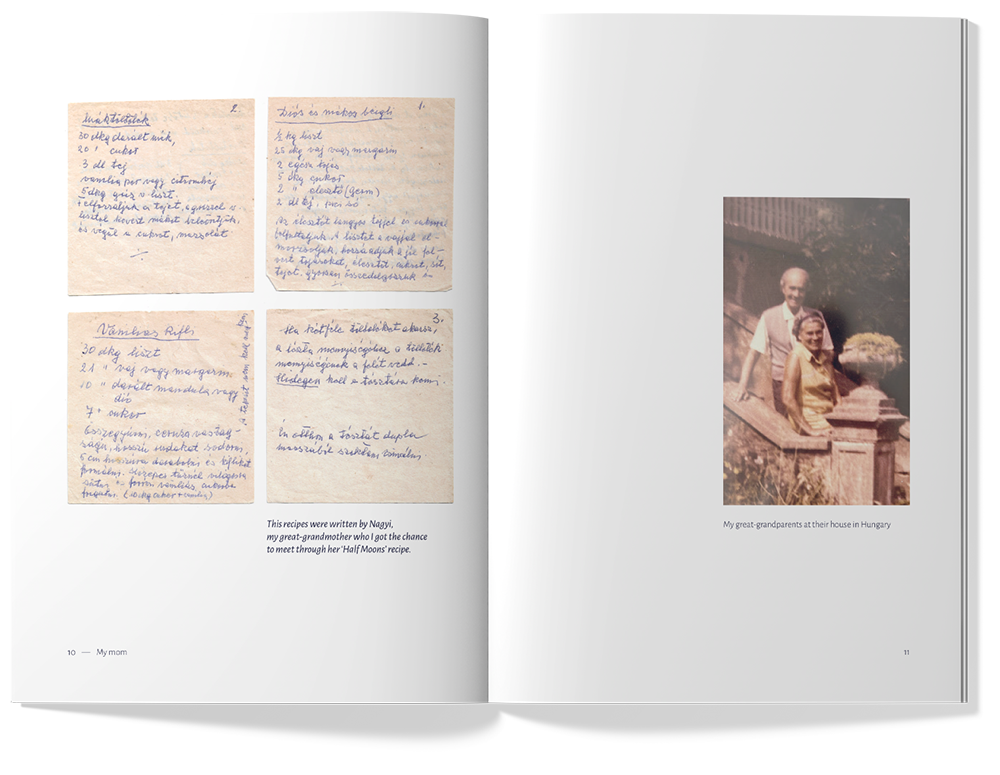 2.
Máktöltelék
30 dkg darált mák,
20 " cukor
3 dl tej
vanília por vagy citromhéj
5 dkg gríz v. liszt.
elforraljuk a tejet, a grízzel v.
liszttel kevert mákot beleöntjük,
és végül a cukrot, mazsolát
1.
Diós és mákos beigli
½ kg liszt
25 dkg vaj vagy margarin
2 egész tojás
5 dkg cukor
2 " élesztő (Germ)
2 dl tej, pici só.
Az élesztőt langyos tejjel és cukorral
felfuttatjuk. A lisztet a vajjal el-
morzsoljuk, hozzáadjuk a
tojásokat, élesztőt, cukrot, sót,
tejet, gyorsan összedolgozzuk
Vaníliás Kifli
30 dkg liszt
21 " vaj vagy margarin
10 " darált mandula vagy
dió
7 " cukor
Összegyúrni, ceruza vastag-
ságú, hosszú rudakat sodorni,
5 cm hosszúra darabolni és kifliket
formálni. Közepes tűznél világosra
sütni forrón vaníliás cukorba
forgatni. (10 dkg cukor + vanília)
A tepsit nem kell
3.
Ha kétféle tölteléket akarsz,
a tészta mennyiségéhez a töltelék
mennyiségének a felét vedd.
Hidegen kell a tésztára kenni.
Én ebben a tésztát dupla
This recipes were written by Nagyi,
my great-grandmother who I got the chance
to meet through her 'Half Moons' recipe.
My great-grandparents at their house in Hungary
10 — My mom
11